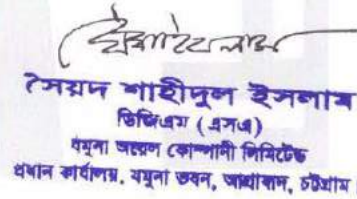 সৈয়দ শাহীদুল ইসলাম
ডিজিএম (এসএ)
যমুনা অয়েল কোম্পানী লিমিটেড
প্রধান কার্যালয়, যমুনা ভবন, আগ্রাবাদ, চট্টগ্রাম